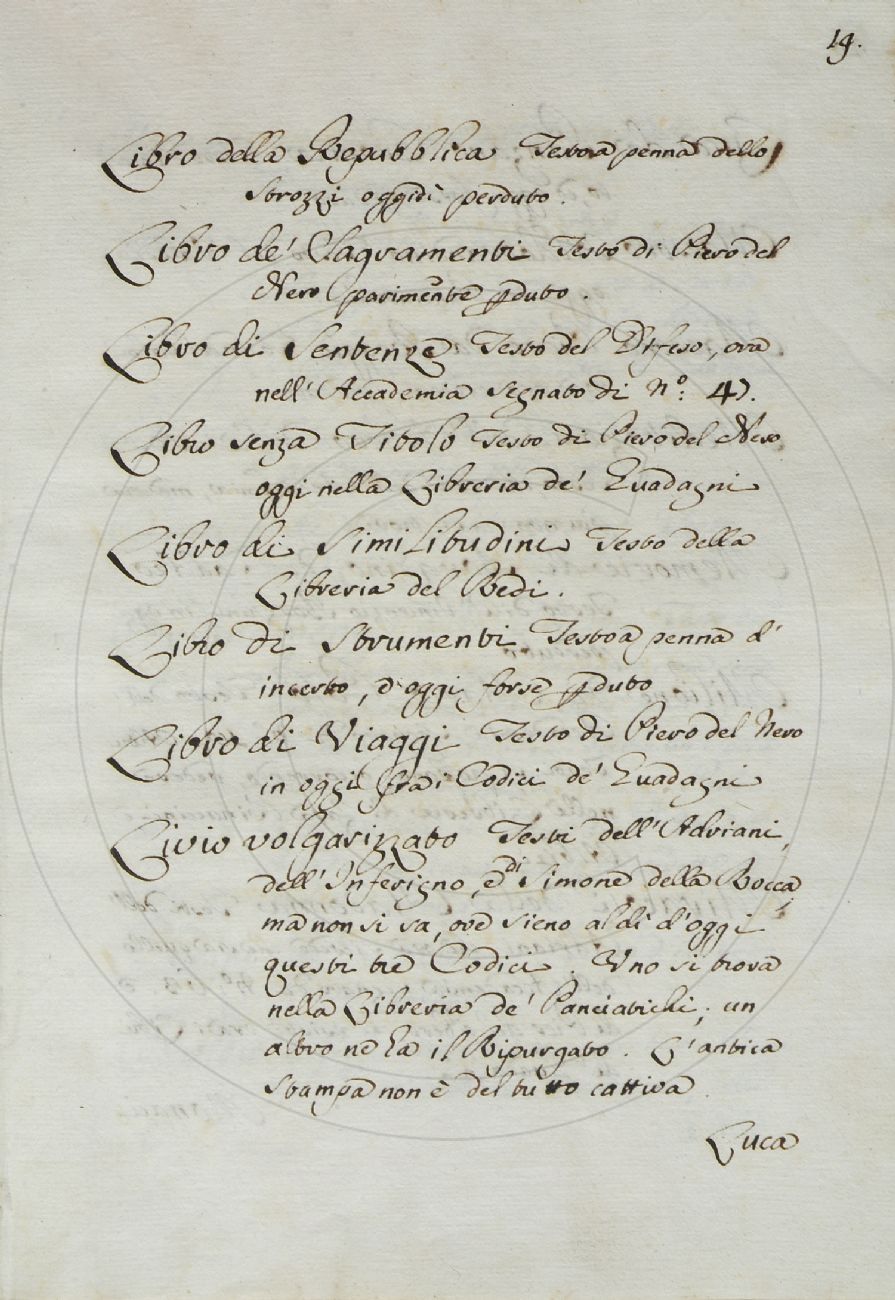 19.
Libro della Repubblica Testo a penna dello
Strozzi oggidì perduto.
Libro de' Sagramenti Testo di Piero del
Nero parimente pduto.
Libro di Sentenze Testo del Difeso, ora
nell'Accademia segnato di N.º:
Libro senza Titolo Testo di Piero del Nero
oggi nella Libreria de' Guadagni
Libro di Similitudini Testo della
Libreria del Redi.
Libro di Strumenti Testo a penna d'
incerto, e oggi forse pduto
Libro di Viaggi Testo di Piero del Nero
in oggi fra i Codici de' Guadagni
Livio volgarizzato Testi dell'Adriani,
dell'Inferigno, e di Simone della Rocca,
ma non si sa, ove sieno al dì d'oggi
questi tre Codici. Uno si trova
nella Libreria de' Panciatichi; un
altro ne ha il Ripurgato. L'antica
Stampa non è del tutto cattiva.
Luca